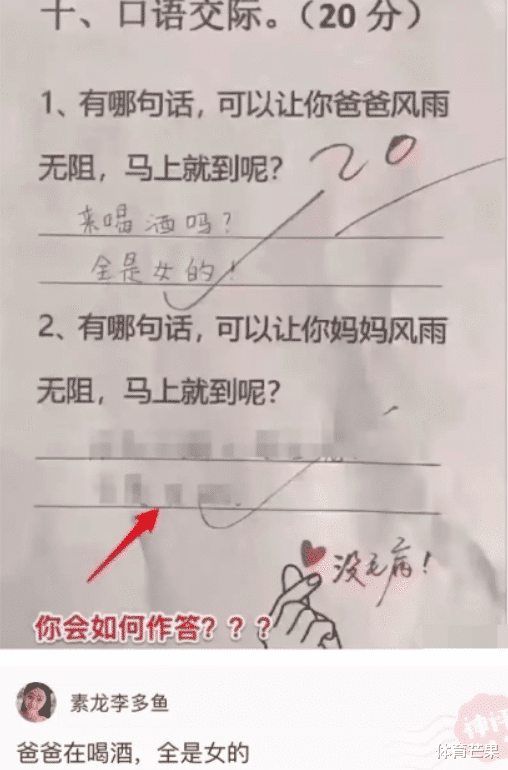 十、口语交际。（20 分）
1、有哪句话，可以让你爸爸风雨
无阻，马上就到呢？
20
来喝酒吗？
全是女的！
2、有哪句话，可以让你妈妈风雨
无阻，马上就到呢？
没毛病！
你会如何作答？？？
素龙李多鱼
神评
爸爸在喝酒，全是女的
体育芒果